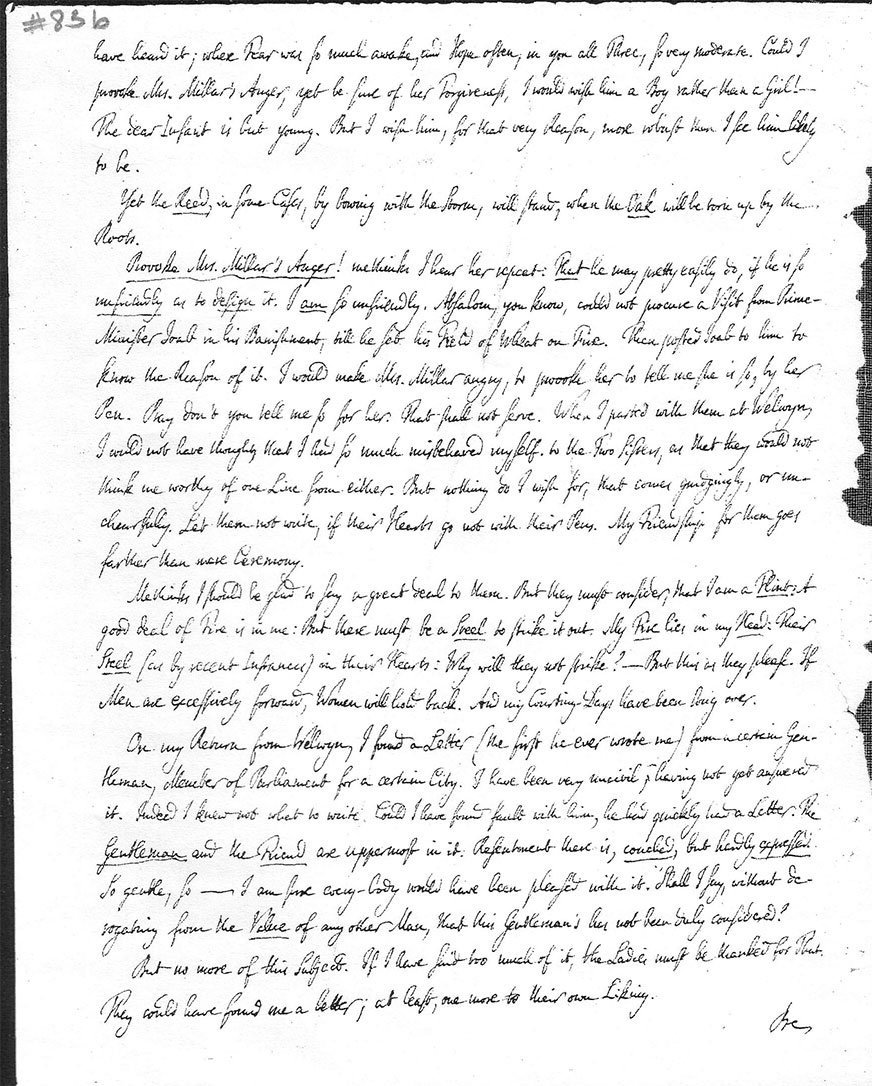 #83b
have heard it; where Fear was so much awake, and Hope often, in you all Three, so very moderate. Could I
provoke Mrs. Millar's Anger, yet be sure of her Forgiveness, I would wish him a Boy rather than a Girl!—
The dear Infant is but young. But I wish him, for that very Reason, more robust than I see him likely
to be.
Yet the Reed, in some Cases, by bowing with the Storm, will stand, when the Oak will be torn up by the
Roots.
Provoke Mrs. Millar's Anger! methinks I hear her repeat: That he may pretty easily do, if he is so
unfriendly as to design it. I am so unfriendly. Absalom, you know, could not procure a Visit from Prime-
Minister Joab in his Banishment, till he set his Field of Wheat on Fire. Then posted Joab to him to
know the Reason of it. I would make Mrs. Millar angry, to provoke her to tell me she is so, by her
Pen. Pray don't you tell me so for her: That shall not serve. When I parted with them at Welwyn,
I would not have thought that I had so much misbehaved myself to the Two Sisters, as that they would not
think me worthy of one Line from either. But nothing do I wish for, that comes grudgingly, or un-
chearfully. Let them not write, if their Hearts go not with their Pens. My Friendship for them goes
farther than mere Ceremony.
Methinks I should be glad to say a great deal to them. But they must consider, that I am a Flint: A
good deal of Fire is in me: But there must be a Steel to strike it out. My Fire lies in my Head: Their
Steel (as by recent Instances) in their Hearts: Why will they not strike?—But this as they please. If
Men are excessively forward, Women will hold back. And my Courting-Days have been long over.
On my Return from Welwyn, I found a Letter (the first he ever wrote me) from a certain Gen-
tleman, Member of Parliament for a certain City. I have been very uncivil, having not yet answered
it. Indeed I knew not what to write. Could I have found fault with him, he had quickly had a Letter. The
Gentleman and the Friend are uppermost in it. Resentment there is, couched, but hardly expressed.
So gentle, so —— I am sure every-body would have been pleased with it. Shall I say, without de-
rogating from the Value of any other Man, that this Gentleman's has not been duly considered?
But no more of this Subject. If I have said too much of it, the Ladies must be thanked for That.
They could have found me a better; at least, one more to their own Liking.